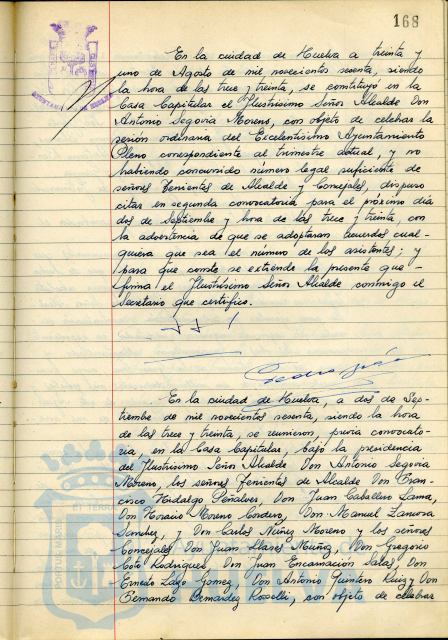 168
En la ciudad de Huelva a treinta y
uno de Agosto de mil novecientos sesenta, siendo
la hora de las trece y treinta, se constituyó en la
Casa Capitular el Ilustrísimo Señor Alcalde Don
Antonio Segovia Moreno, con objeto de celebrar la
sesión ordinaria del Excelentísimo Ayuntamiento
Pleno correspondiente al trimestre actual, y no
habiendo concurrido número legal suficiente de
señores Tenientes de Alcalde y Concejales, dispuso
citar en segunda convocatoria para el próximo día
dos de Septiembre y hora de las trece y treinta, con
la advertencia de que se adoptarán acuerdos cual-
quiera que sea el número de los asistentes; y
para que conste se extiende la presente que
firma el Ilustrísimo Señor Alcalde conmigo el
Secretario que certifico.
En la ciudad de Huelva, a dos de Sep-
tiembre de mil novecientos sesenta, siendo la hora
de las trece y treinta, se reunieron, previa convocato-
ria, en la Casa Capitular, bajo la presidencia
del Ilustrísimo Señor Alcalde Don Antonio Segovia
Moreno, los señores Tenientes de Alcalde Don Fran-
cisco Hidalgo Peñalver, Don Juan Caballero Lama,
Don Horacio Moreno Cordero, Don Manuel Zamora
Sanchez, y Don Carlos Núñez Moreno y los señores
Concejales Don Juan Llanes Muñoz, Don Gregorio
Coto Rodríguez, Don Juan Encarnación Salas, Don
Ernesto Lazo Gomez, Don Antonio Quintero Ruiz y Don
Bernardo Bernardez Roselli, con objeto de celebrar